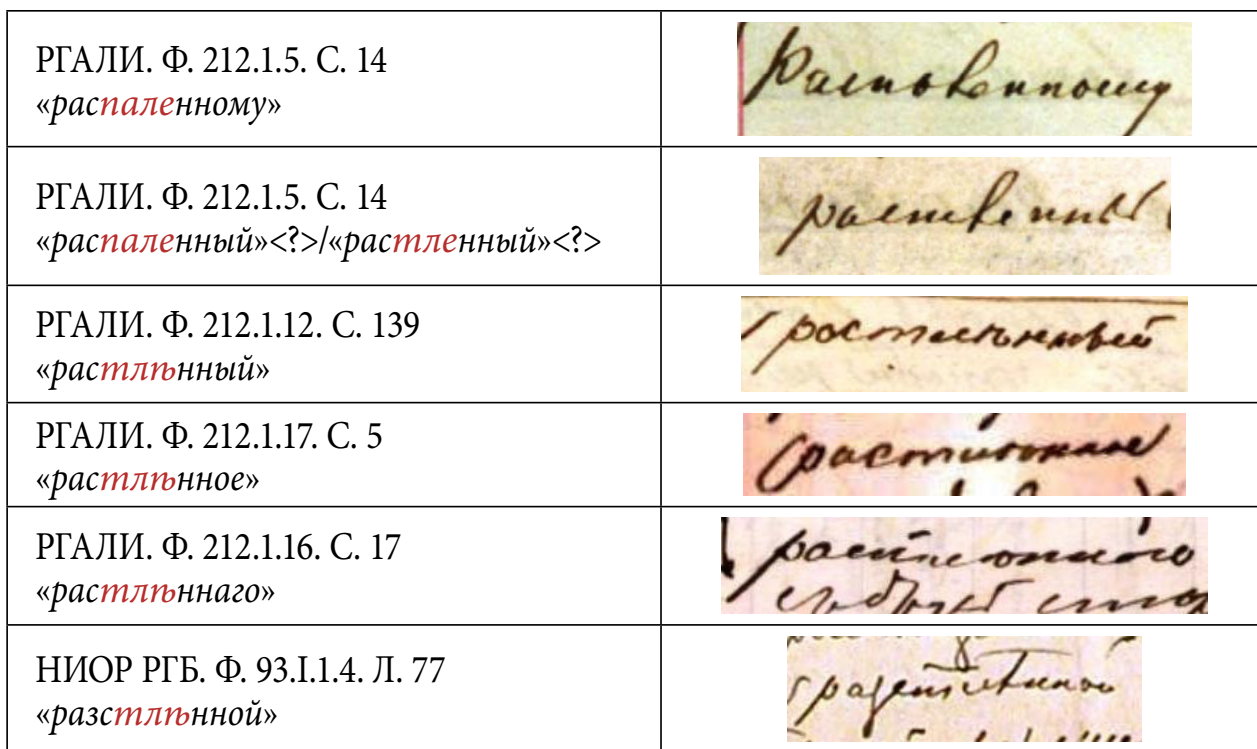 РГАЛИ. Ф. 212.1.5. С. 14
«распаленному»
Распаленному
РГАЛИ. Ф. 212.1.5. С. 14
«распаленный»<?>/«растленный»<?>
РГАЛИ. Ф. 212.1.12. С. 139
«растлѣнный»
растлѣнный
РГАЛИ. Ф. 212.1.17. С. 5
«растлѣнное»
растлѣнное
РГАЛИ. Ф. 212.1.16. С. 17
«растлѣннаго»
растлѣннаго
НИОР РГБ. Ф. 93.I.1.4. Л. 77
«разстлѣнной»
разстлѣнной